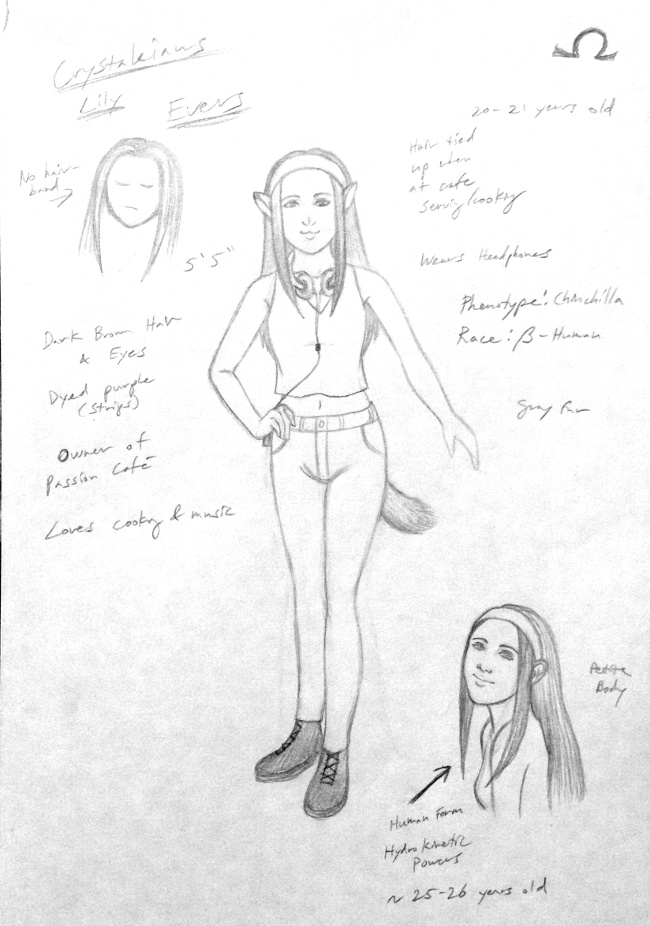 Crystakians
Lily Evers
20-21 years old
No hair-
band
Hair tied
up when
at cafe
serving/cooking
5'5"
Wears Headphones
Phenotype: Chinchilla
Race: β-Human
Dark Brown Hair
& Eyes
Dyed purple
(strips)
Gray Fur
Owner of
Passion Café
Loves cooking & music
Body
Human Form
Hydrokinetic
Powers
~ 25-26 years old